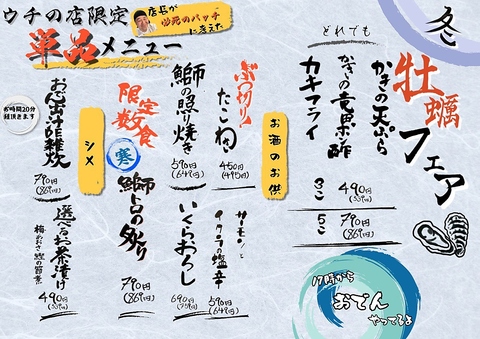 冬
牡蠣フェア
どれでも
かきの天ぷら
かきの竜田 酢
カキフライ
3こ 490円
(539円)
5こ 790円
(869円)
17時から
おでん
やってるよ
ウチの店限定
店長が
必死のパッチ
に考えた
単品メニュー
お酒のお供
ぶつ切り!
たこわさ
450円
(495円)
鰤の照り焼き
590円
(649円)
サーモンと
イクラの塩辛
590円
(649円)
いくらおろし
690円
(759円)
限定数食
寒
鰤トロの炙り
790円
(869円)
シメ
お時間20分
頂きます
おでん出汁雑炊
790円
(869円)
選べるお茶漬け
梅 わさ
490円
(539円)